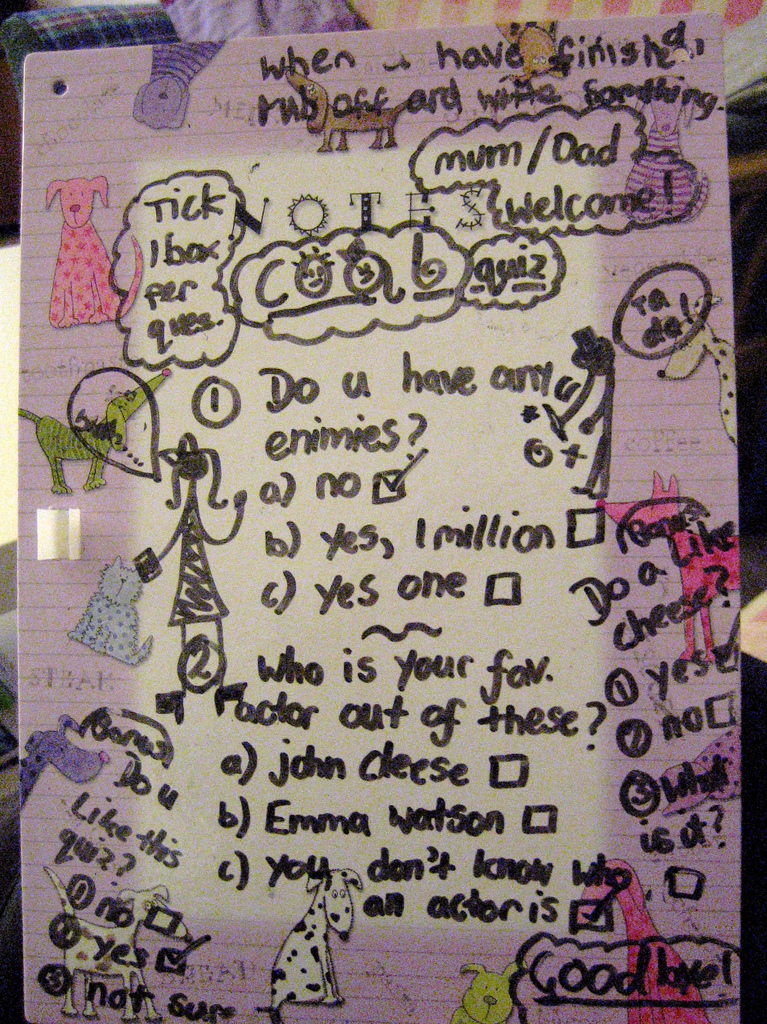 when u have finished,
rub off and write something.
mum/Dad
welcome!
Tick
1 box
per
ques.
NOTES
cool quiz
Ta
da!
① Do u have any
enimies?
a) no
b) yes, 1 million
c) yes one
② who is your fav.
factor out of these?
a) john cleese
b) Emma watson
c) you don't know who
an actor is
Bonus
Do u like
cheese?
① yes
② no
③ what
is it?
Bonus
Do u
Like this
quiz?
① no
② yes
③ not sure
Good bye!